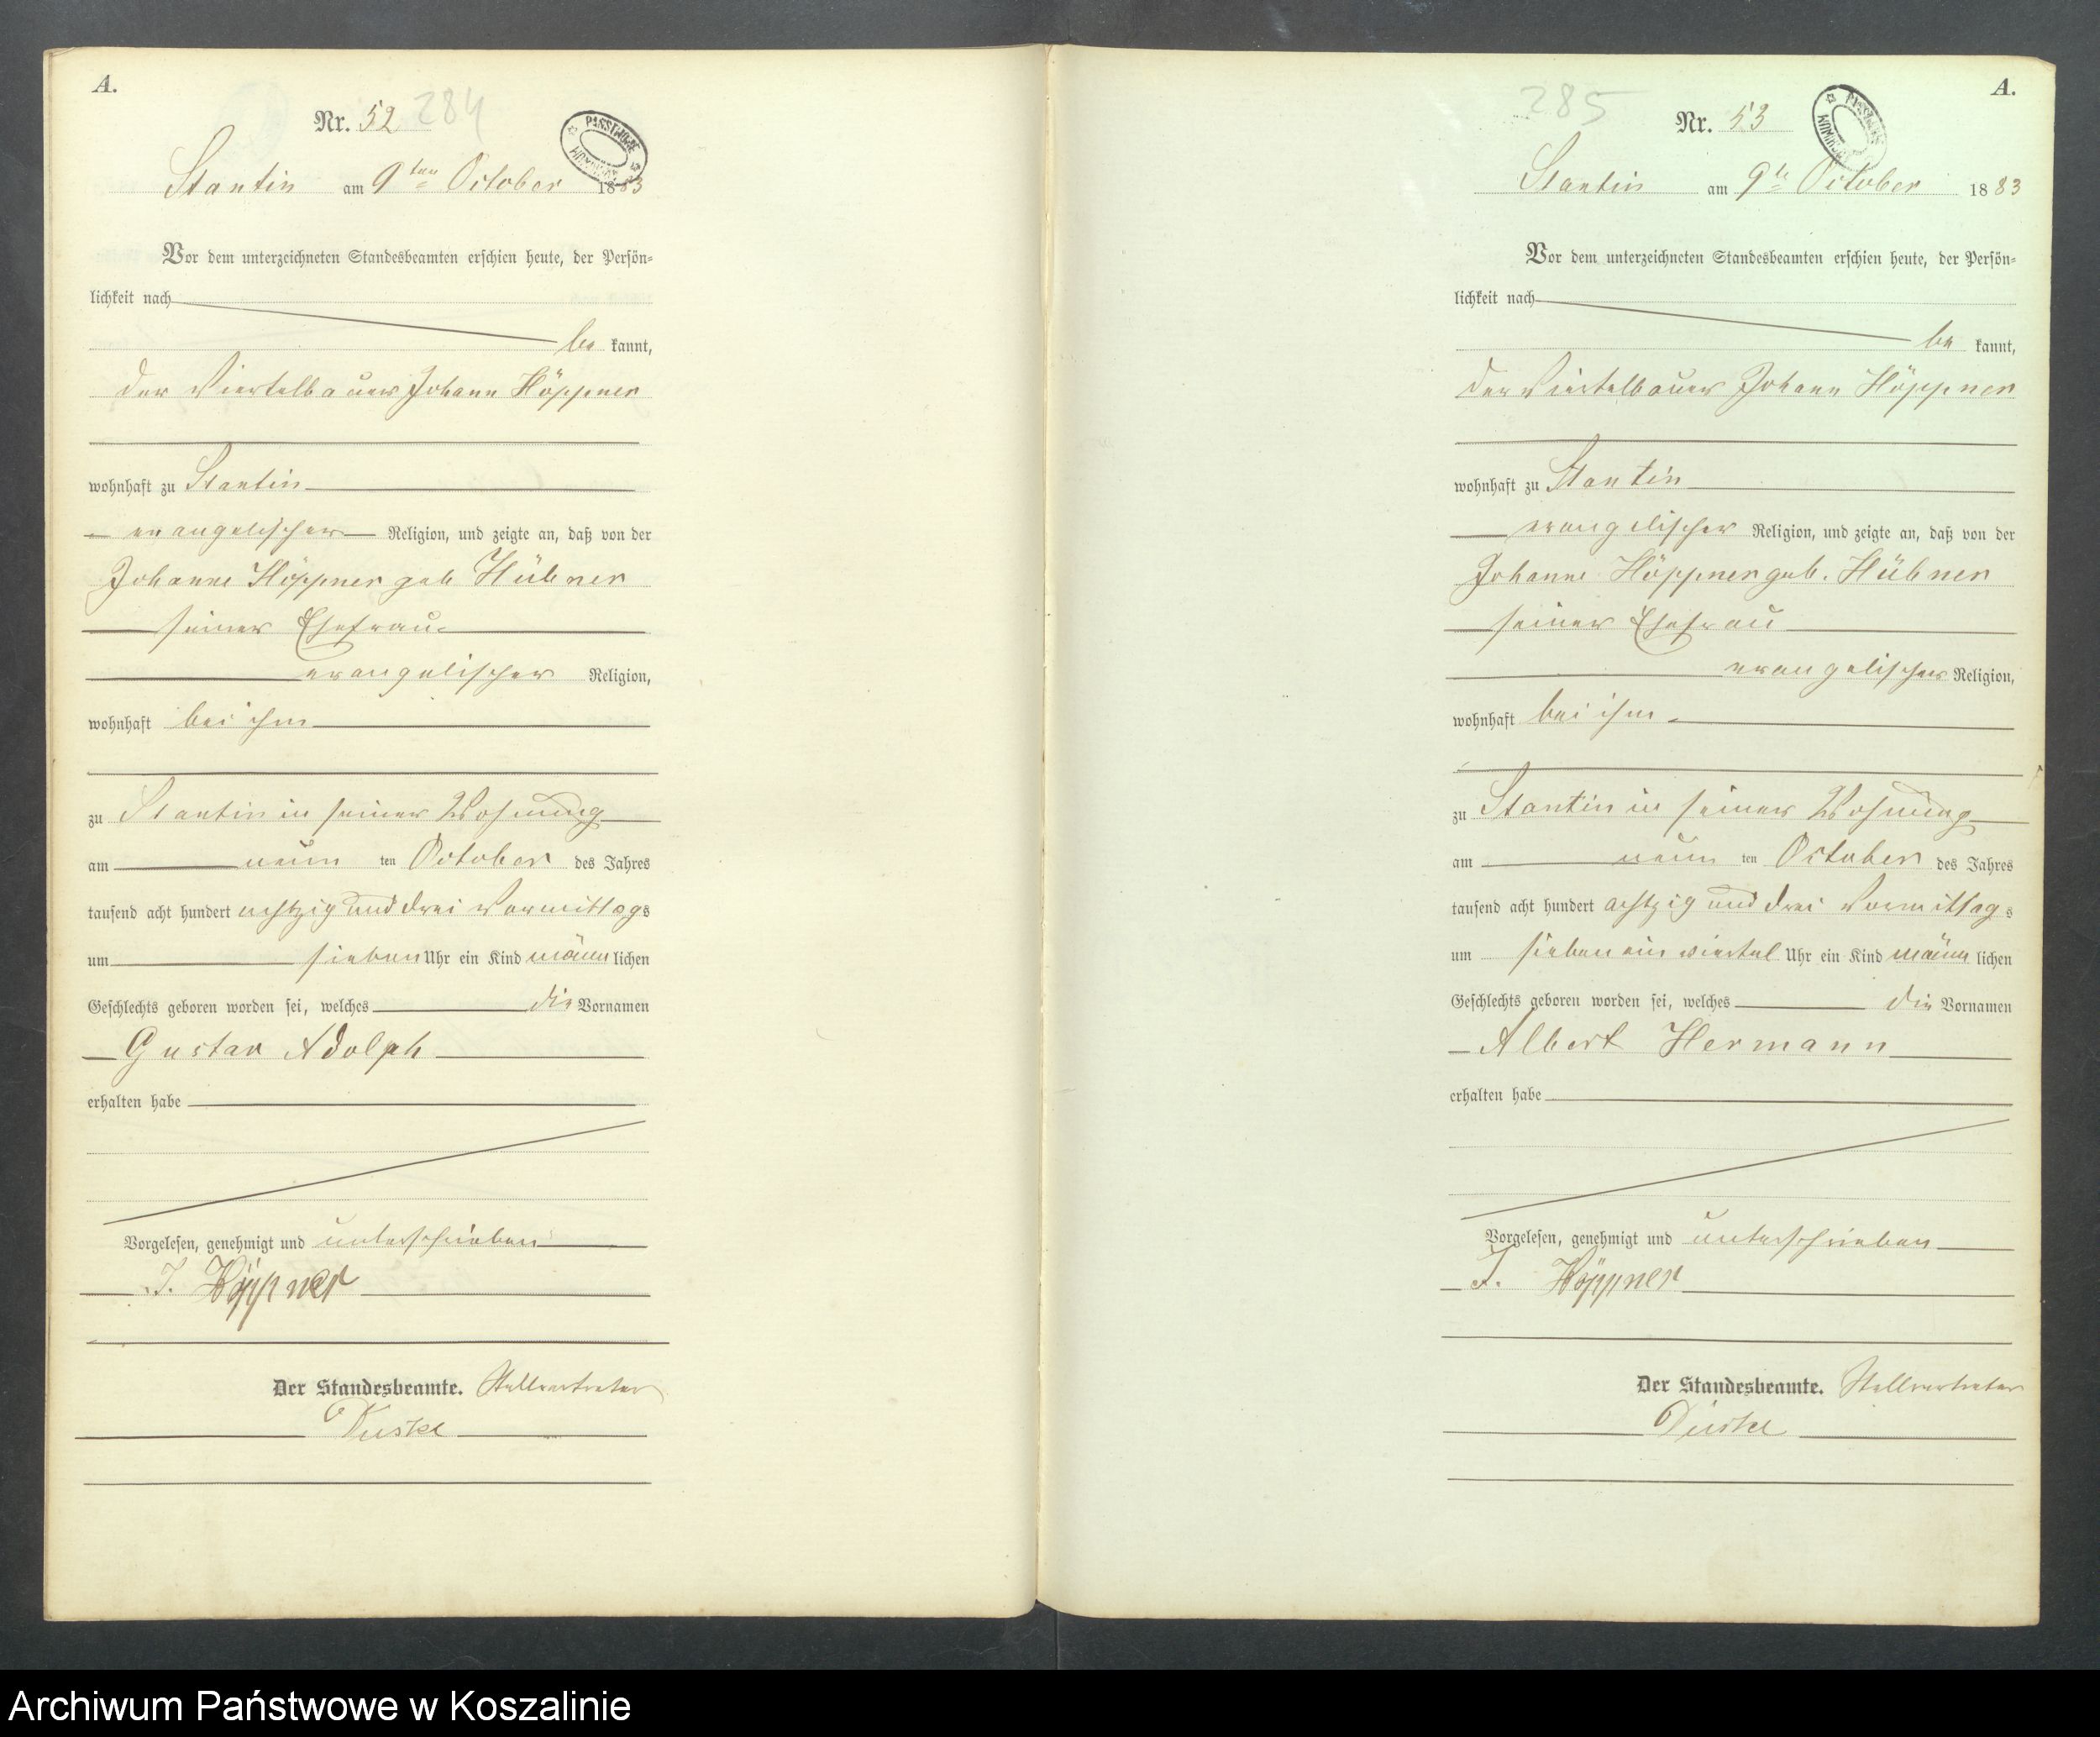 A.
Nr. 52 284
Stantin am 9ten October 1883
Vor dem unterzeichneten Standesbeamten erschien heute, der Persön-
lichkeit nach
be kannt,
der Viertelbauer Johann Höppner
wohnhaft zu Stantin
evangelischer Religion, und zeigte an, daß von der
Johanne Höppner geb Hübner
seiner Ehefrau
evangelischer Religion,
wohnhaft bei ihm
zu Stantin in seiner Wohnung
am neun ten October des Jahres
tausend acht hundert achtzig und drei Vormittags
um sieben Uhr ein Kind männlichen
Geschlechts geboren worden sei, welches die Vornamen
Gustav Adolph
erhalten habe
Vorgelesen, genehmigt und unterschrieben
J. Höppner
Der Standesbeamte. Stellvertreter
285
A.
Nr. 53
Stantin am 9te October 1883
Vor dem unterzeichneten Standesbeamten erschien heute, der Persön-
lichkeit nach
be kannt,
der Viertelbauer Johann Höppner
wohnhaft zu Stantin
evangelischer Religion, und zeigte an, daß von der
Johanne Höppner geb. Hübner
seiner Ehefrau
evangelischer Religion,
wohnhaft bei ihm
zu Stantin in seiner Wohnung
am neun ten October des Jahres
tausend acht hundert achtzig und drei Vormittags
um sieben ein viertel Uhr ein Kind männlichen
Geschlechts geboren worden sei, welches die Vornamen
Albert Hermann
erhalten habe
Vorgelesen, genehmigt und unterschrieben
J. Höppner
Der Standesbeamte. Stellvertreter
Archiwum Państwowe w Koszalinie